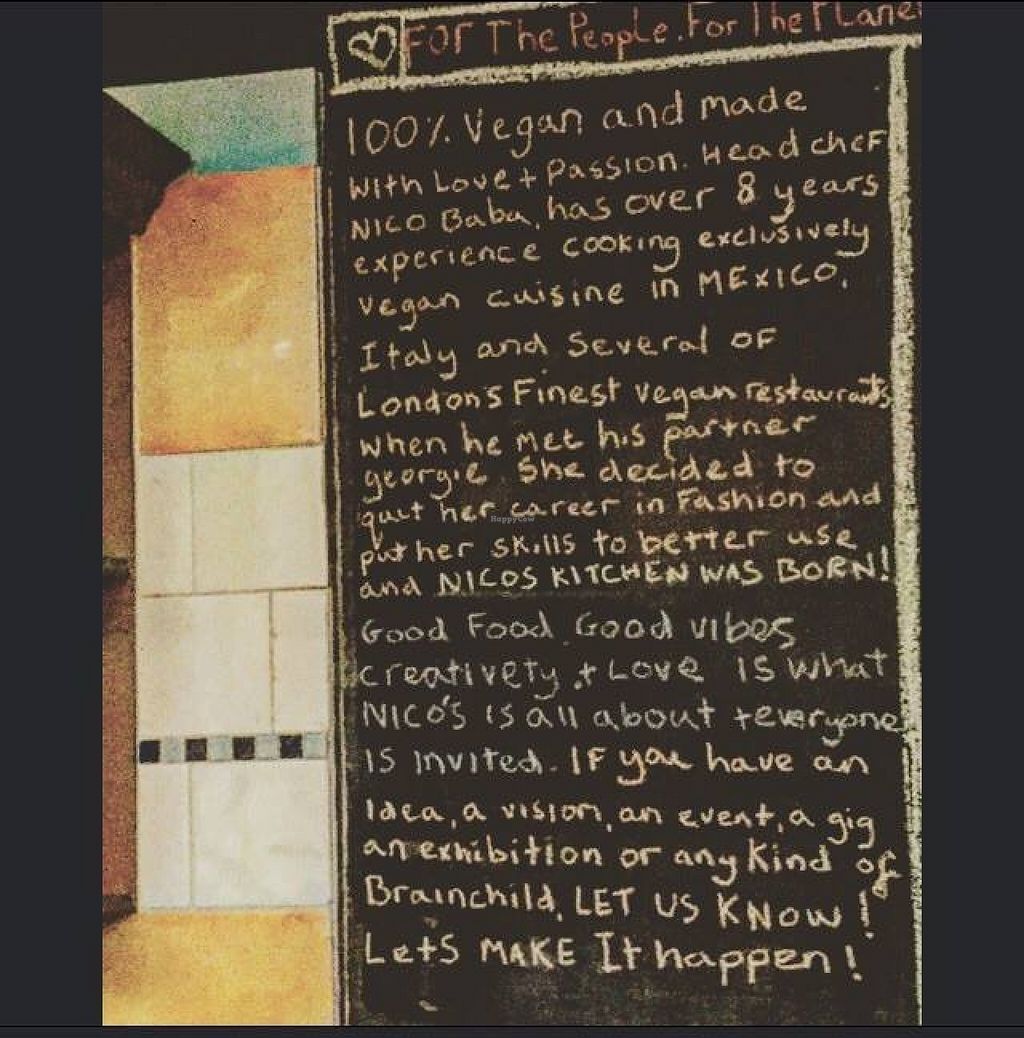 FOr The People. For The Plane
100% Vegan and made
with Love + Passion. Head chef
NICO Baba, has over 8 years
experience cooking exclusively
vegan cuisine in MEXICO,
Italy and several of
London's Finest vegan restaurants
when he met his partner
georgie. She decided to
quit her career in Fashion and
put her skills to better use
and NICOS KITCHEN WAS BORN!
Good Food. Good vibes
creativety + Love is what
NICO'S is all about + everyone
is invited. IF you have an
Idea, a vision, an event, a gig
an exhibition or any Kind of
Brainchild, LET US KNOW!
Let's MAKE It happen!
HappyCow